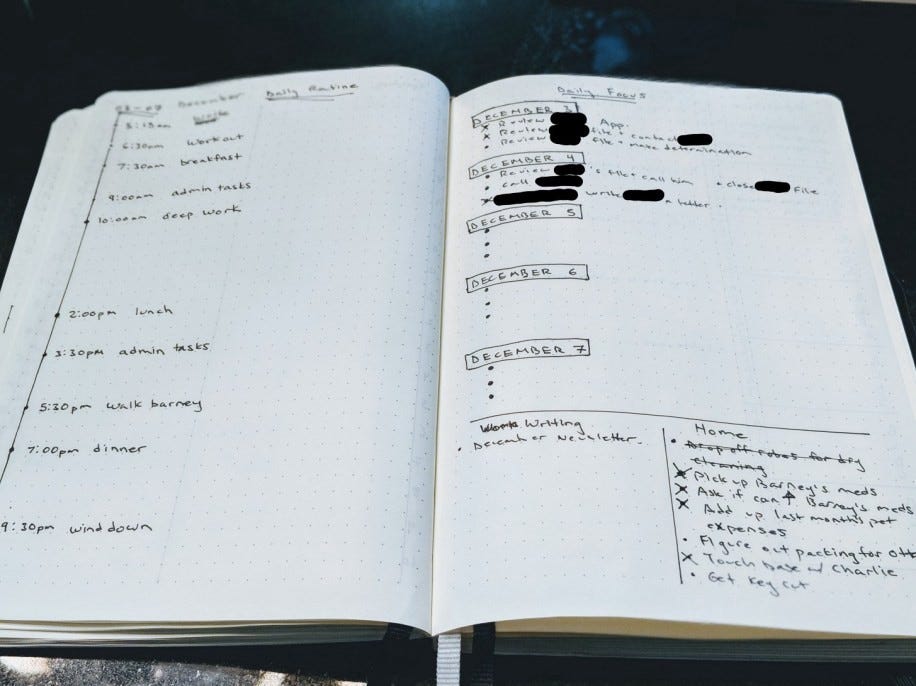 03-07 December
Daily Routine
5:15am write
6:30am workout
7:30am breakfast
9:00am admin tasks
10:00am deep work
2:00pm lunch
3:30pm admin tasks
5:30pm walk barney
7:00pm dinner
9:30pm wind down
Daily Focus
DECEMBER 3
Review App.
Review file + contact
Review file + make determination
DECEMBER 4
Review 's file + call him + close file
call
write a letter.
DECEMBER 5
DECEMBER 6
DECEMBER 7
Writing
December Newsletter.
Home
Drop off robes for dry
cleaning
Pick up Barney's meds
Ask if can ↑ Barney's meds
Add up last month's pet
expenses
Figure out packing for
Touch base w/ Charlie
Get key cut